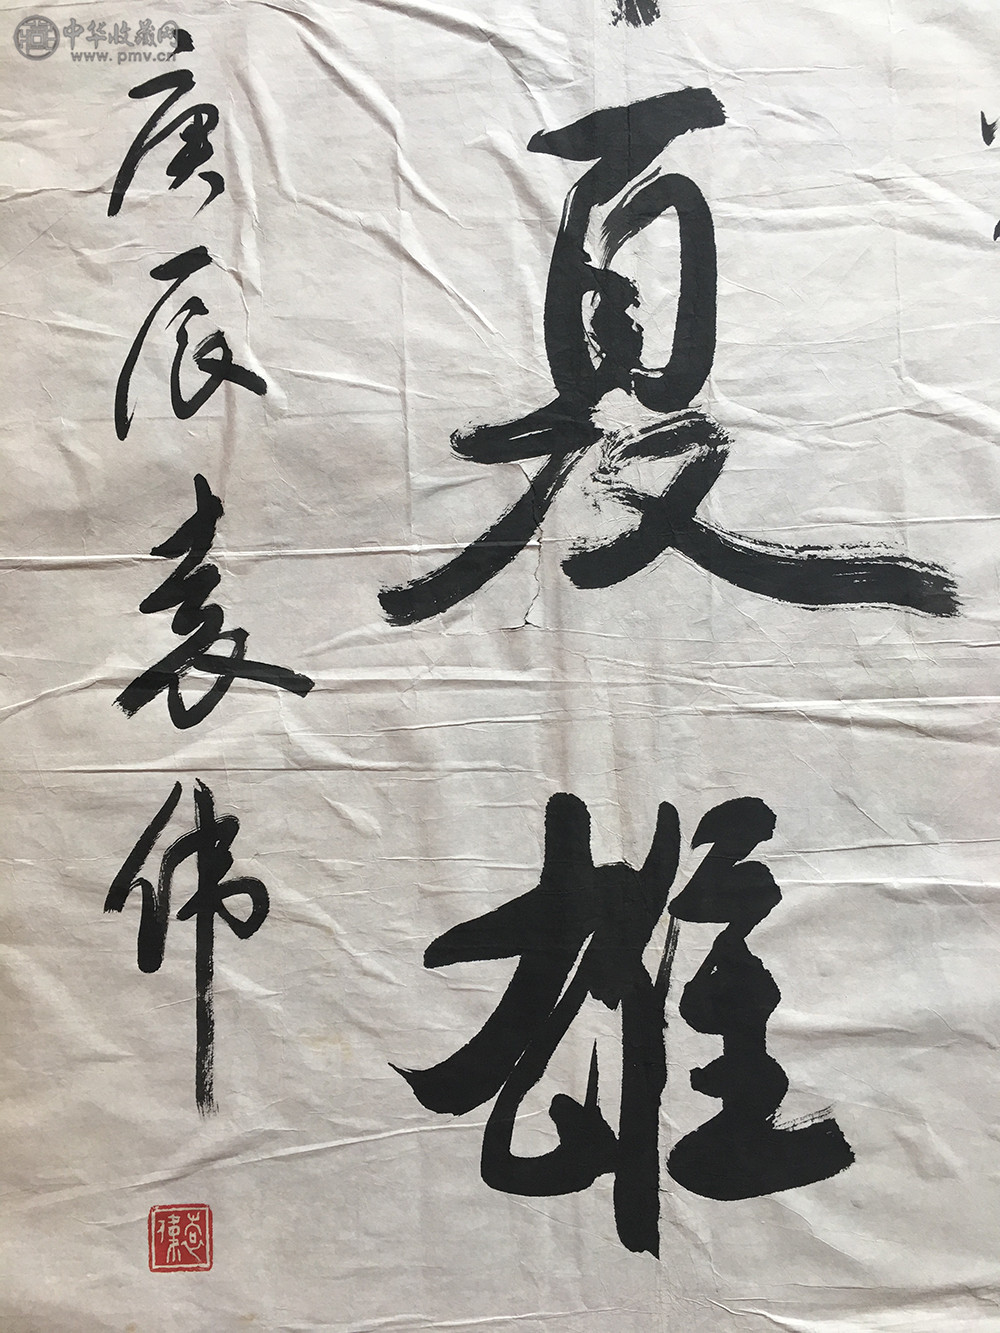 夏雄
庚辰袁伟
中华收藏网
www.pmv.cn